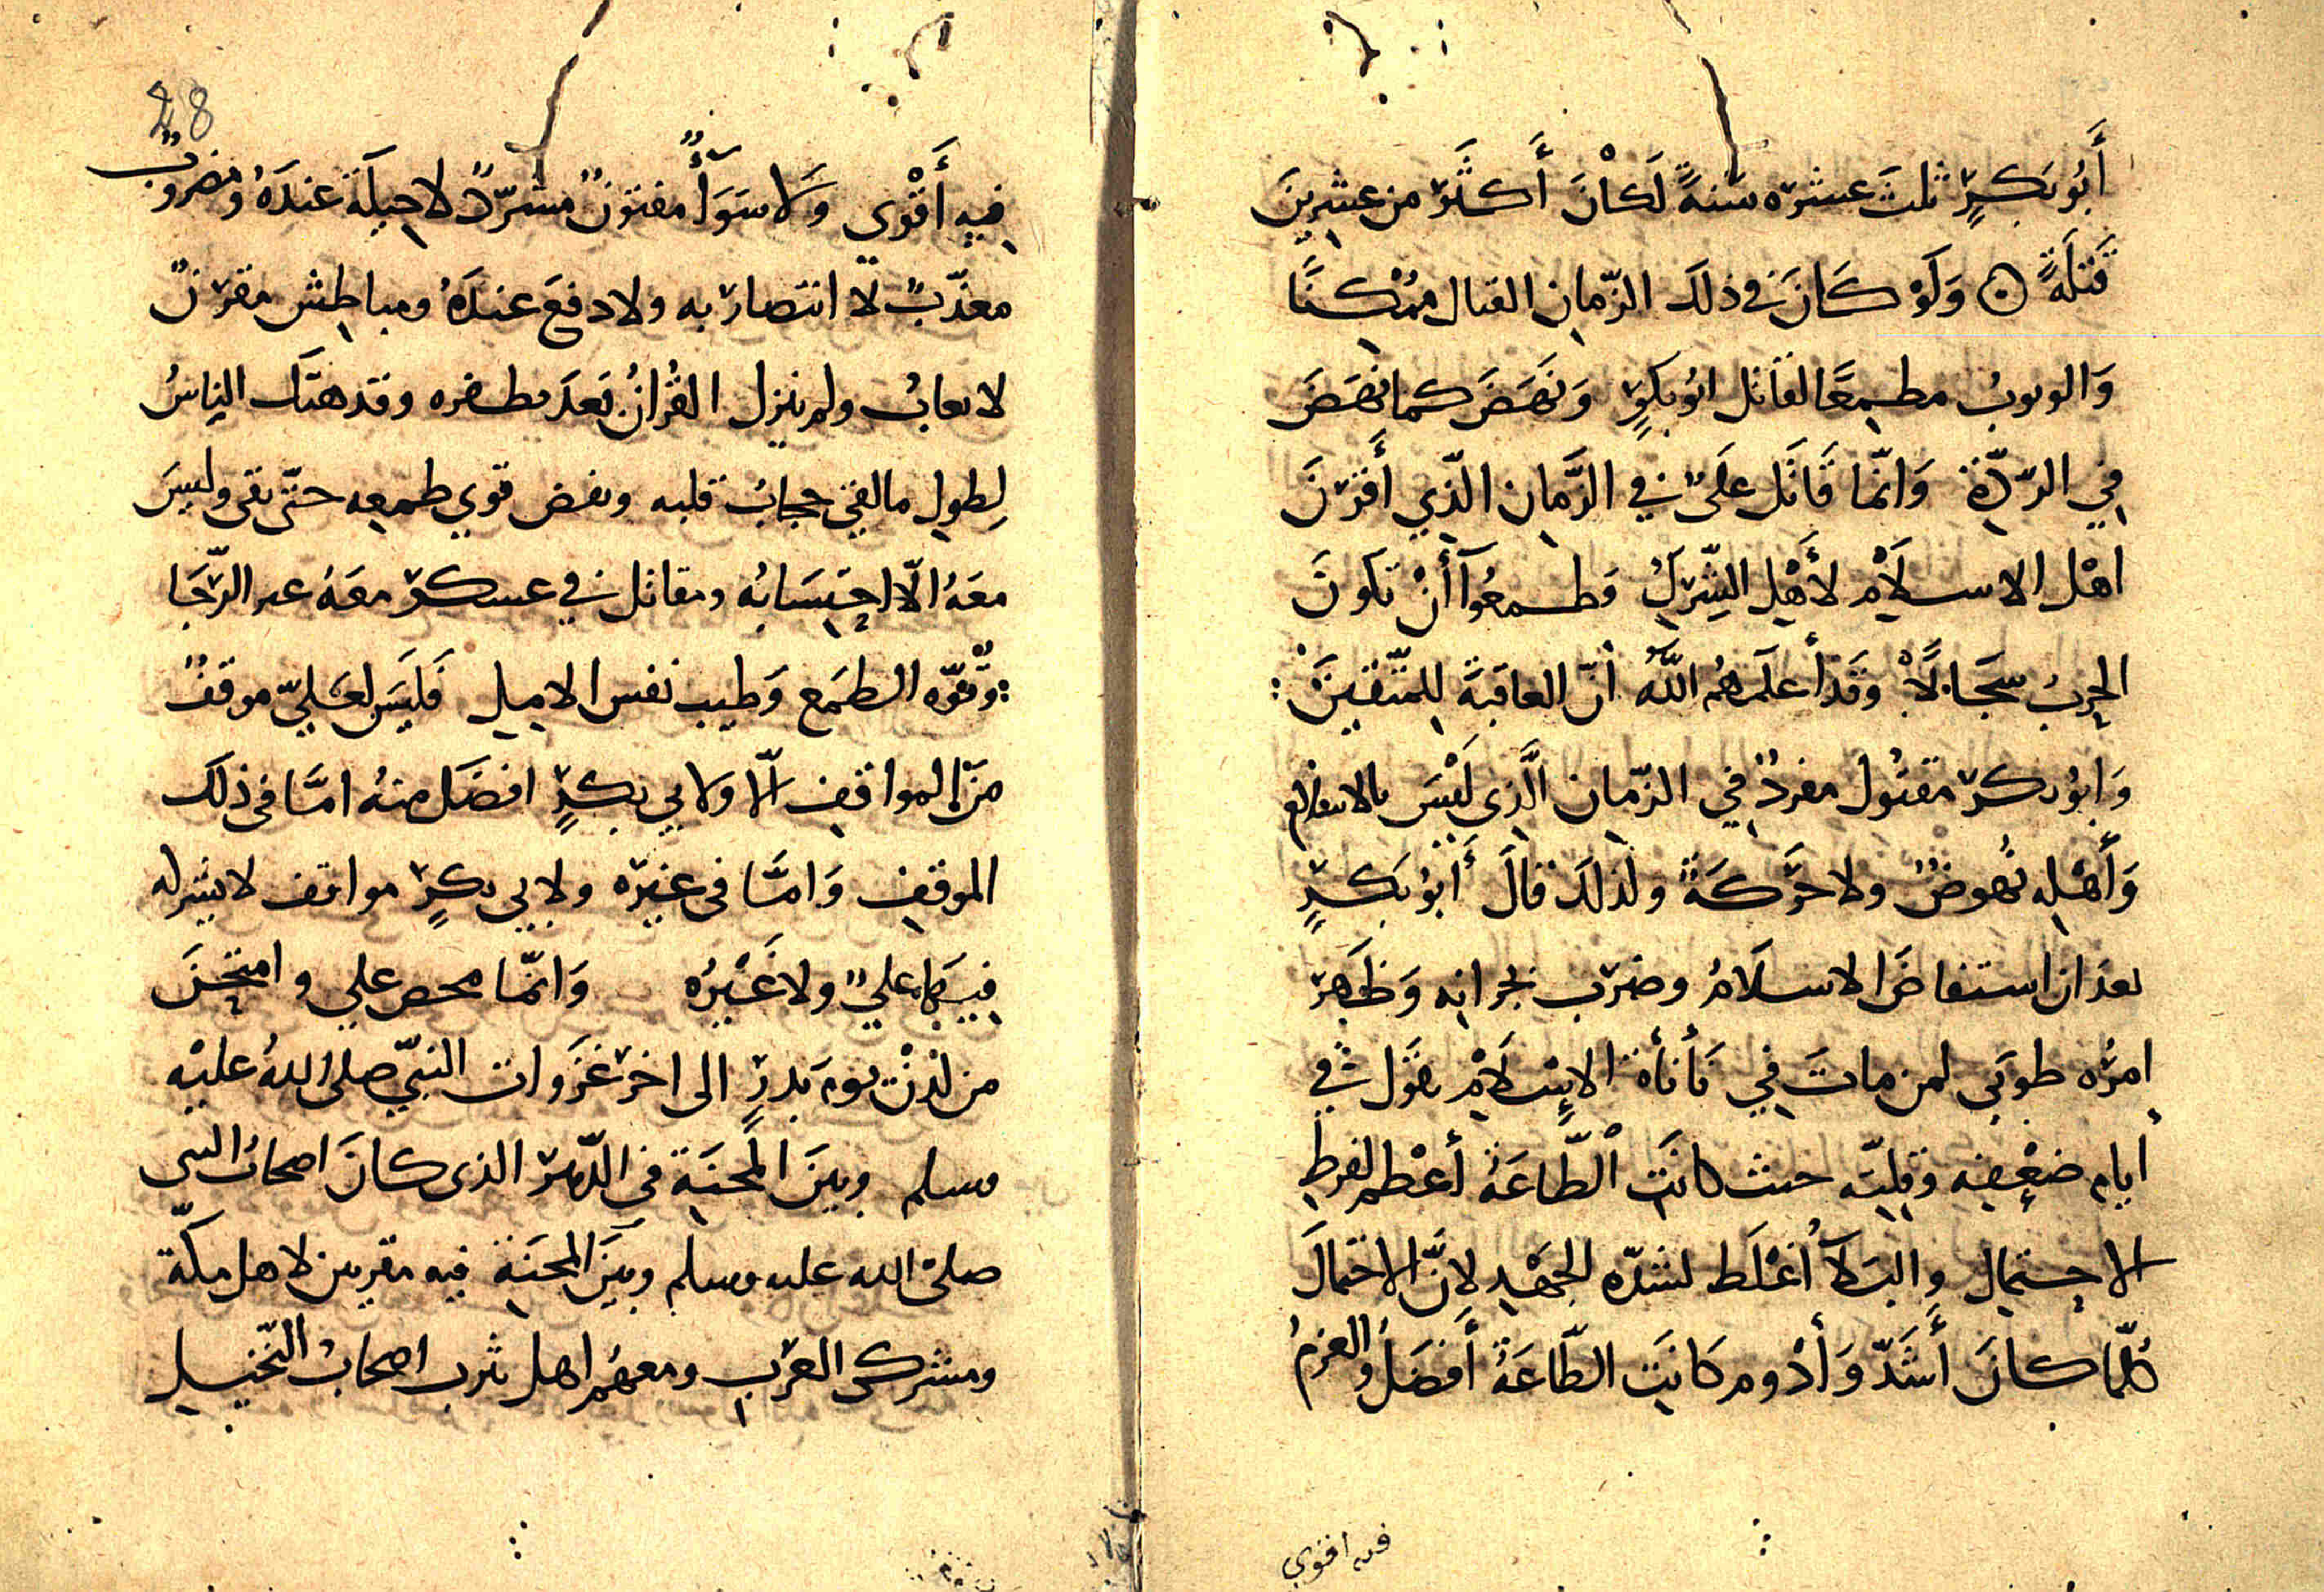 أَبُو بَكِرٍ ثلثَ عشره سَنةً لَكانَ أَكثَر من عشرِينَ
قَتلَةً ۞ وَلَوْ كَانَ فى ذلكَ الزّمانِ القتال مُمْكنًا
وَالوثوبُ مطمِعًا لقاتل ابُو بكرٍ وَنَهَضَ كما نهَضَ
فِي الرّدّةِ وَانّما قَاتَل علَىٌ في الزَّمان الّذِي أَقرَنَ
اهْل الاسلَامِ لأَهْلِ الشِّركِ وَطمعُوآ أَنْ تكونَ
الحربُ سجَالًا وَقَد أَعلمَهُم اللَّهُ أنّ العاقبَةَ لِلمتّقِينَ :
وَابُو بكر مقتُول مفردٌ فِي الزّمان الَّذِى لَيْسَ بالاسلامِ
وَأَهْلِه نُهوضٌ ولا حَرَكَةً ولذلكَ قالَ أَبُو بَكرٍ
بعد ان استفاضَ الاسلَامُ وضرب بجرانِهِ وَظَهَر
امرُه طوبَى لمن ماتَ فِي نَأنأة الاِسْلَامِ يقوَل فى
ايام ضعْفِه وَقِلتِه حيث كانَتِ الطّاعَةُ أعْظم لفرطِ
الاحتمالِ والبَلَآءُ أغْلَظ لشدّه الجَهْدِ لانّ الاحتمالَ
كُلّما كانَ أَشَدّ وَأَدْوم كَانَتِ الطّاعَةُ أَفضَلُ والعزمُ
فيه اقوى
28
فِيهِ أَقْوى وَلا سَوَآءٌ مفتونٌ مشرّدٌ لا حِيلَةَ عندَهُ ومضروبٌ
معذّبٌ لا انتصار به ولا دفعَ عندَهُ ومباطِش مقرنٌ
لا يعابُ ولم ينزِل القُرانُ بَعدَ بظفره وقد هتَك الناسُ
لِطولِ ما لقي حجابُ قلبه ونقض قوى طمعِه حتّى بقى وليسَ
معَهُ الّا احتِسَابُه ومقاتل في عسكر معَهُ عز الرّجَا
وقُوّه الطمَع وَطِيب نفس الامِيلِ فَليَسَ لعَليّ موقفٌ
مَن المواقِفِ الّا ولابي بكرٍ افضَل منهُ امَّا فى ذلكَ
الموقفِ وَامَّا فى غيرِه ولابي بكرٍ مواقف لا يشركه
فِيهَا عليٌ ولا غَيْرُه وَانّما محص علي وامتُحِنَ
من لدنْ يوم بَدرٍ الى اخر غزَوات النبيّ صلى اللهُ عليْهِ
وسلم وبينَ المِحنَةِ فى الدّهر الذى كانَ اصحابُ النبى
صلىْ الله عليه وسلم وبيَن المِحنَةِ فيه مقرنين لاهل مكّة
ومشركى العرَبِ ومعهُم اهل يثرب اصحابُ النّخيلِ